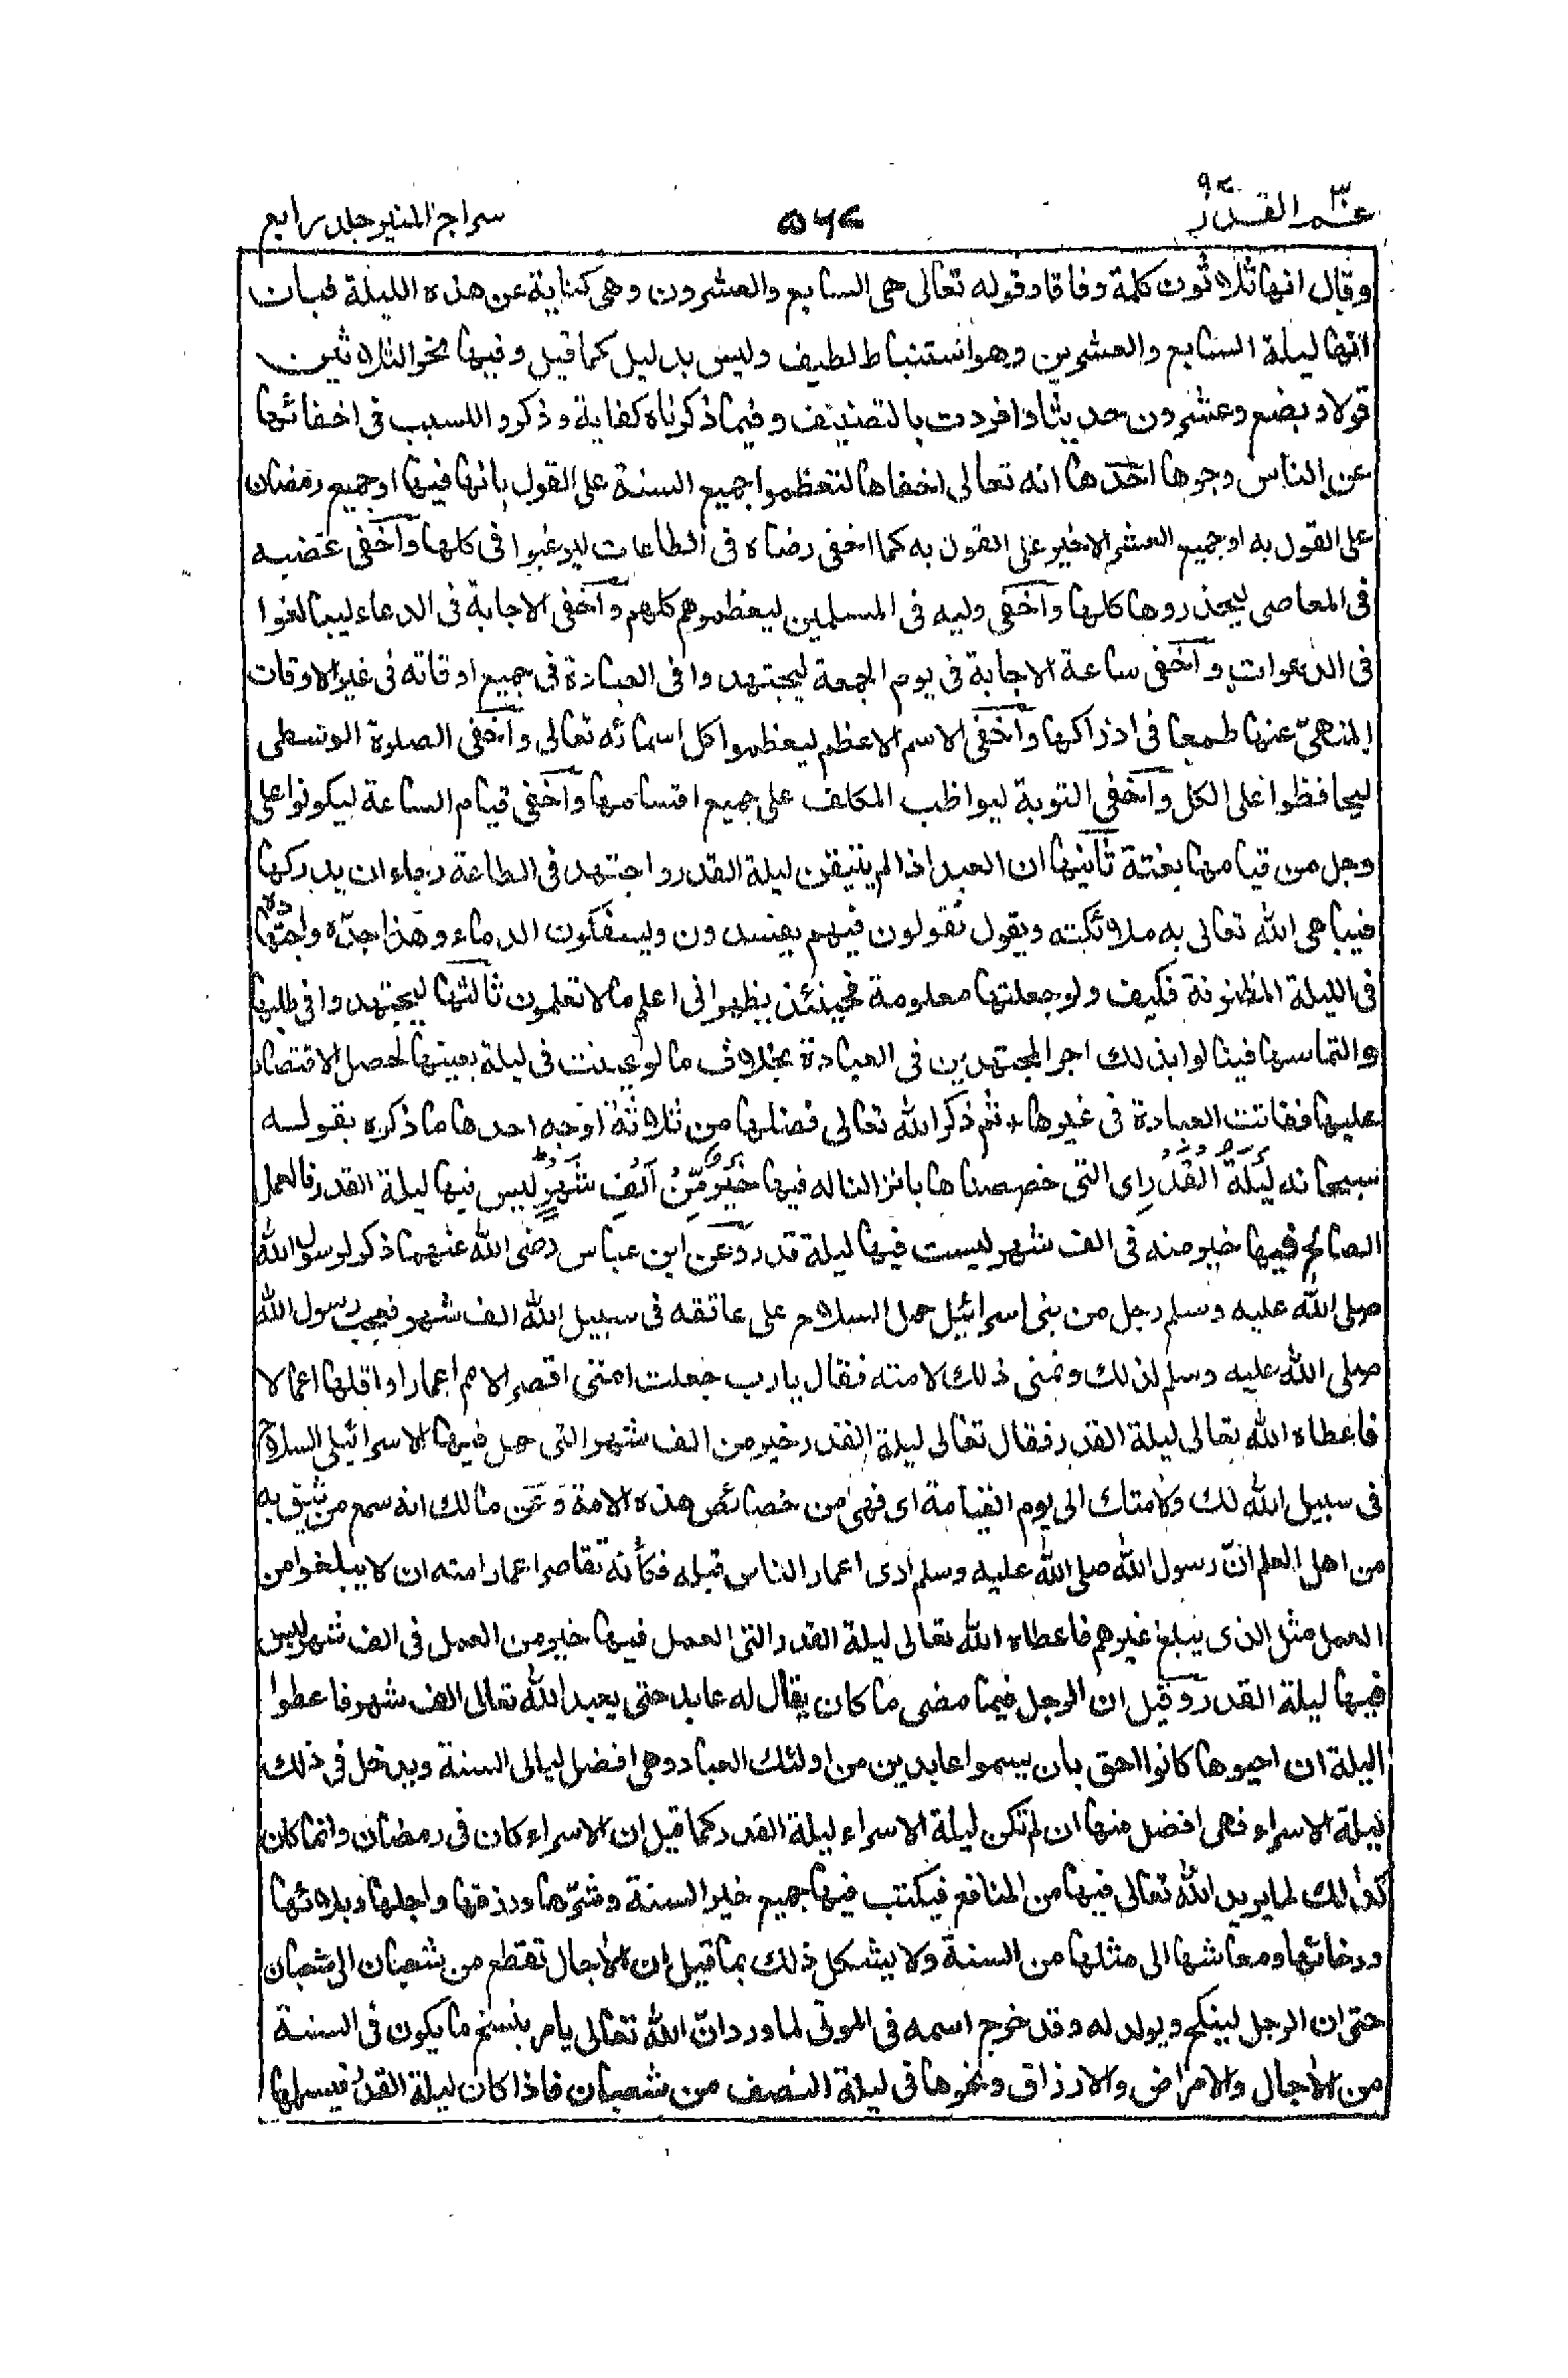 عم ٣٠ القدر ٩٧ ٥٦٧ سراج المنير جلد رابع
وقال انها ثلاثون كلمة وفاقا وقوله تعالى هى السابع والعشرون وهى كناية عن هذه الليلة فبان
انها ليلة السابع والعشرين وهو استنباط لطيف وليس بدليل كما قيل وفيها نحو الثلاثين
قولا وبضع وعشرون حديثا وافردت بالتصنيف وفيما ذكرناه كفاية وذكروا للسبب فى اخفائها
عن الناس وجوها احدها انه تعالى اخفاها لتعظموا جميع السنة على القول بانها فيها اوجميع رمضان
على القول به اوجميع العشر الاخير على القول به كما اخفى رضاه فى الطاعات ليرغبوا فى كلها واخفى غضبه
فى المعاصى ليحذروها كلها واخفى وليه فى المسلمين ليعظموهم كلهم واخفى الاجابة فى الدعاء ليبالغوا
فى الدعوات واخفى ساعة الاجابة فى يوم الجمعة ليجتهدوا فى العبادة فى جميع اوقاته فى غير الاوقات
المنهىّ عنها طمعا فى ادراكها واخفى الاسم الاعظم ليعظموا كل اسمائه تعالى واخفى الصلوة الوسطى
ليحافظوا على الكل واخفى التوبة ليواظب المكلف على جميع اقسامها واخفى قيام الساعة ليكونوا على
وجل من قيامها بغتة ثانيها ان العبد اذا لم يتيقن ليلة القدر واجتهد فى الطاعة رجاء ان يدركها
فيباهى الله تعالى به ملائكته ويقول تقولون فيهم يفسدون ويسفكون الدماء وهذا جدّه واجتهاده
فى الليلة المظنونة فكيف ولو جعلتها معلومة فحينئذ يظهر انى اعلم مالا تعلمون ثالثها ليجتهدوا فى طلبها
والتماسها فينالوا بذلك اجر المجتهدين فى العبادة بخلاف ما لو عينت فى ليلة بعينها لحصل الاقتصار
عليها ففاتت العبادة فى غيرها ٭ ثم ذكر الله تعالى فضلها من ثلاثة اوجه احدها ما ذكره بقوله
سبحانه لَيْلَةُ الْقَدْرِ اى التى خصصناها بانزالنا له فيها خَيْرٌ مِّنْ اَلْفِ شَهْرٍ ليس فيها ليلة القدر فالعمل
الصالح فيها خير منه فى الف شهر ليست فيها ليلة قدر وعن ابن عباس رضى الله عنهما ذكر لرسول الله
صلى الله عليه وسلم رجل من بنى اسرائيل حمل السلاح على عاتقه فى سبيل الله الف شهر فعجب رسول الله
صلى الله عليه وسلم لذلك وتمنى ذلك لامته فقال يارب جعلت امتى اقصر الامم اعمارا واقلها اعمالا
فاعطاه الله تعالى ليلة القدر فقال تعالى ليلة القدر خير من الف شهر التى حمل فيها الاسرائيلى السلاح
فى سبيل الله لك ولامتك الى يوم القيامة اى فهى من خصائص هذه الامة وعن مالك انه سمع من يثق به
من اهل العلم انّ رسول الله صلى الله عليه وسلم ارى اعمار الناس قبله فكأنه تقاصر اعمار امته ان لا يبلغوا من
العمل مثل الذى يبلغ غيرهم فاعطاه الله تعالى ليلة القدر التى العمل فيها خير من العمل فى الف شهر ليس
فيها ليلة القدر وقيل ان الرجل فيما مضى ما كان يقال له عابد حتى يعبد الله تعالى الف شهر فاعطوا
ليلة ان احيوها كانوا احق بان يسموا عابدين من اولئك العباد وهى افضل ليالى السنة ويدخل فى ذلك
ليلة الاسراء فهى افضل منها ان لم تكن ليلة الاسراء ليلة القدر كما قيل ان الاسراء كان فى رمضان وانما كان
كذلك لما يريد الله تعالى فيها من المنافع فيكتب فيها جميع خير السنة وشرّها ورزقها واجلها وبلائها
ورخائها ومعاشها الى مثلها من السنة ولا يشكل ذلك بما قيل ان الآجال تقطع من شعبان الى شعبان
حتى ان الرجل لينكح ويولد له وقد خرج اسمه فى الموتى لما ورد انّ الله تعالى يأمر بنسخ ما يكون فى السنة
من الآجال والامراض والارزاق ونحوها فى ليلة النصف من شعبان فاذا كان ليلة القدر فيسلمها